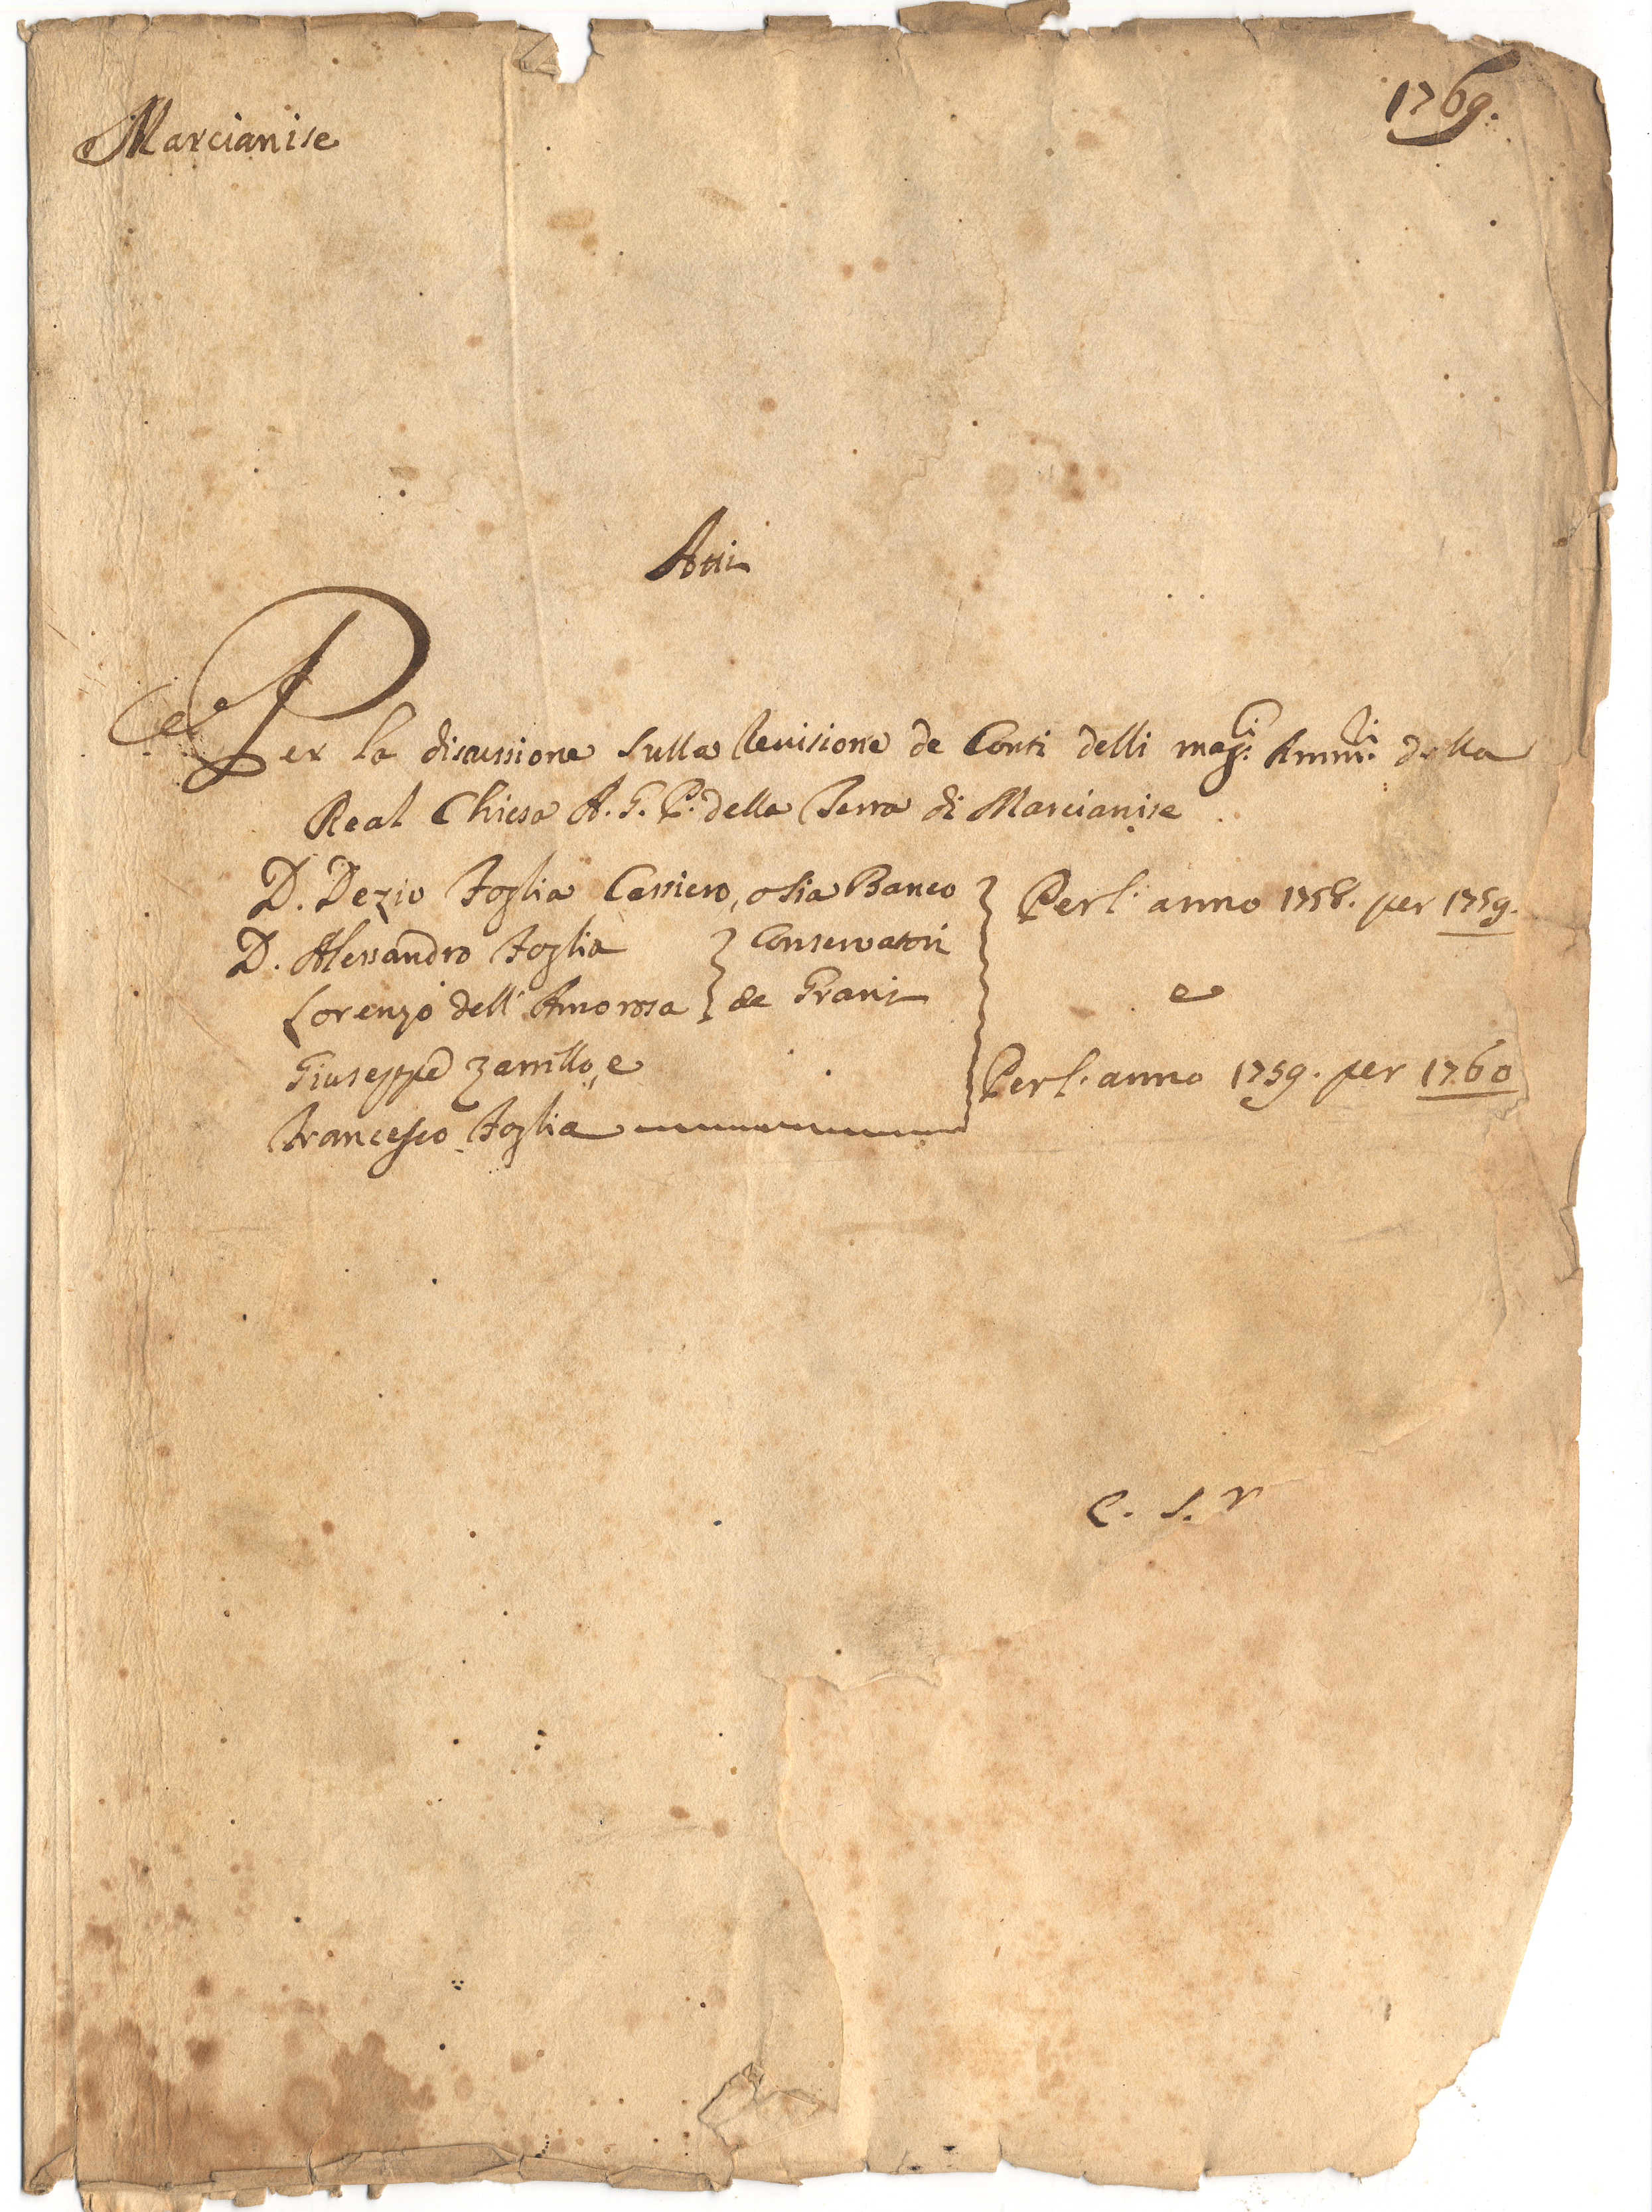 Marcianise
1769.
Atti
Per la discussione sulla Revisione de Conti delli mag:ci Amm:ri della
Real Chiesa A. G. P. della Terra di Marcianise
D. Dezio Foglia Cassiero, o sia Banco } Per l'anno 1758. per 1759.
D. Alessandro Foglia } Conservatori
Lorenzo dell'Amorosa } de Grani
e
Giuseppe Zarrillo, e
Per l'anno 1759. per 1760
Francesco Foglia
C. S. V